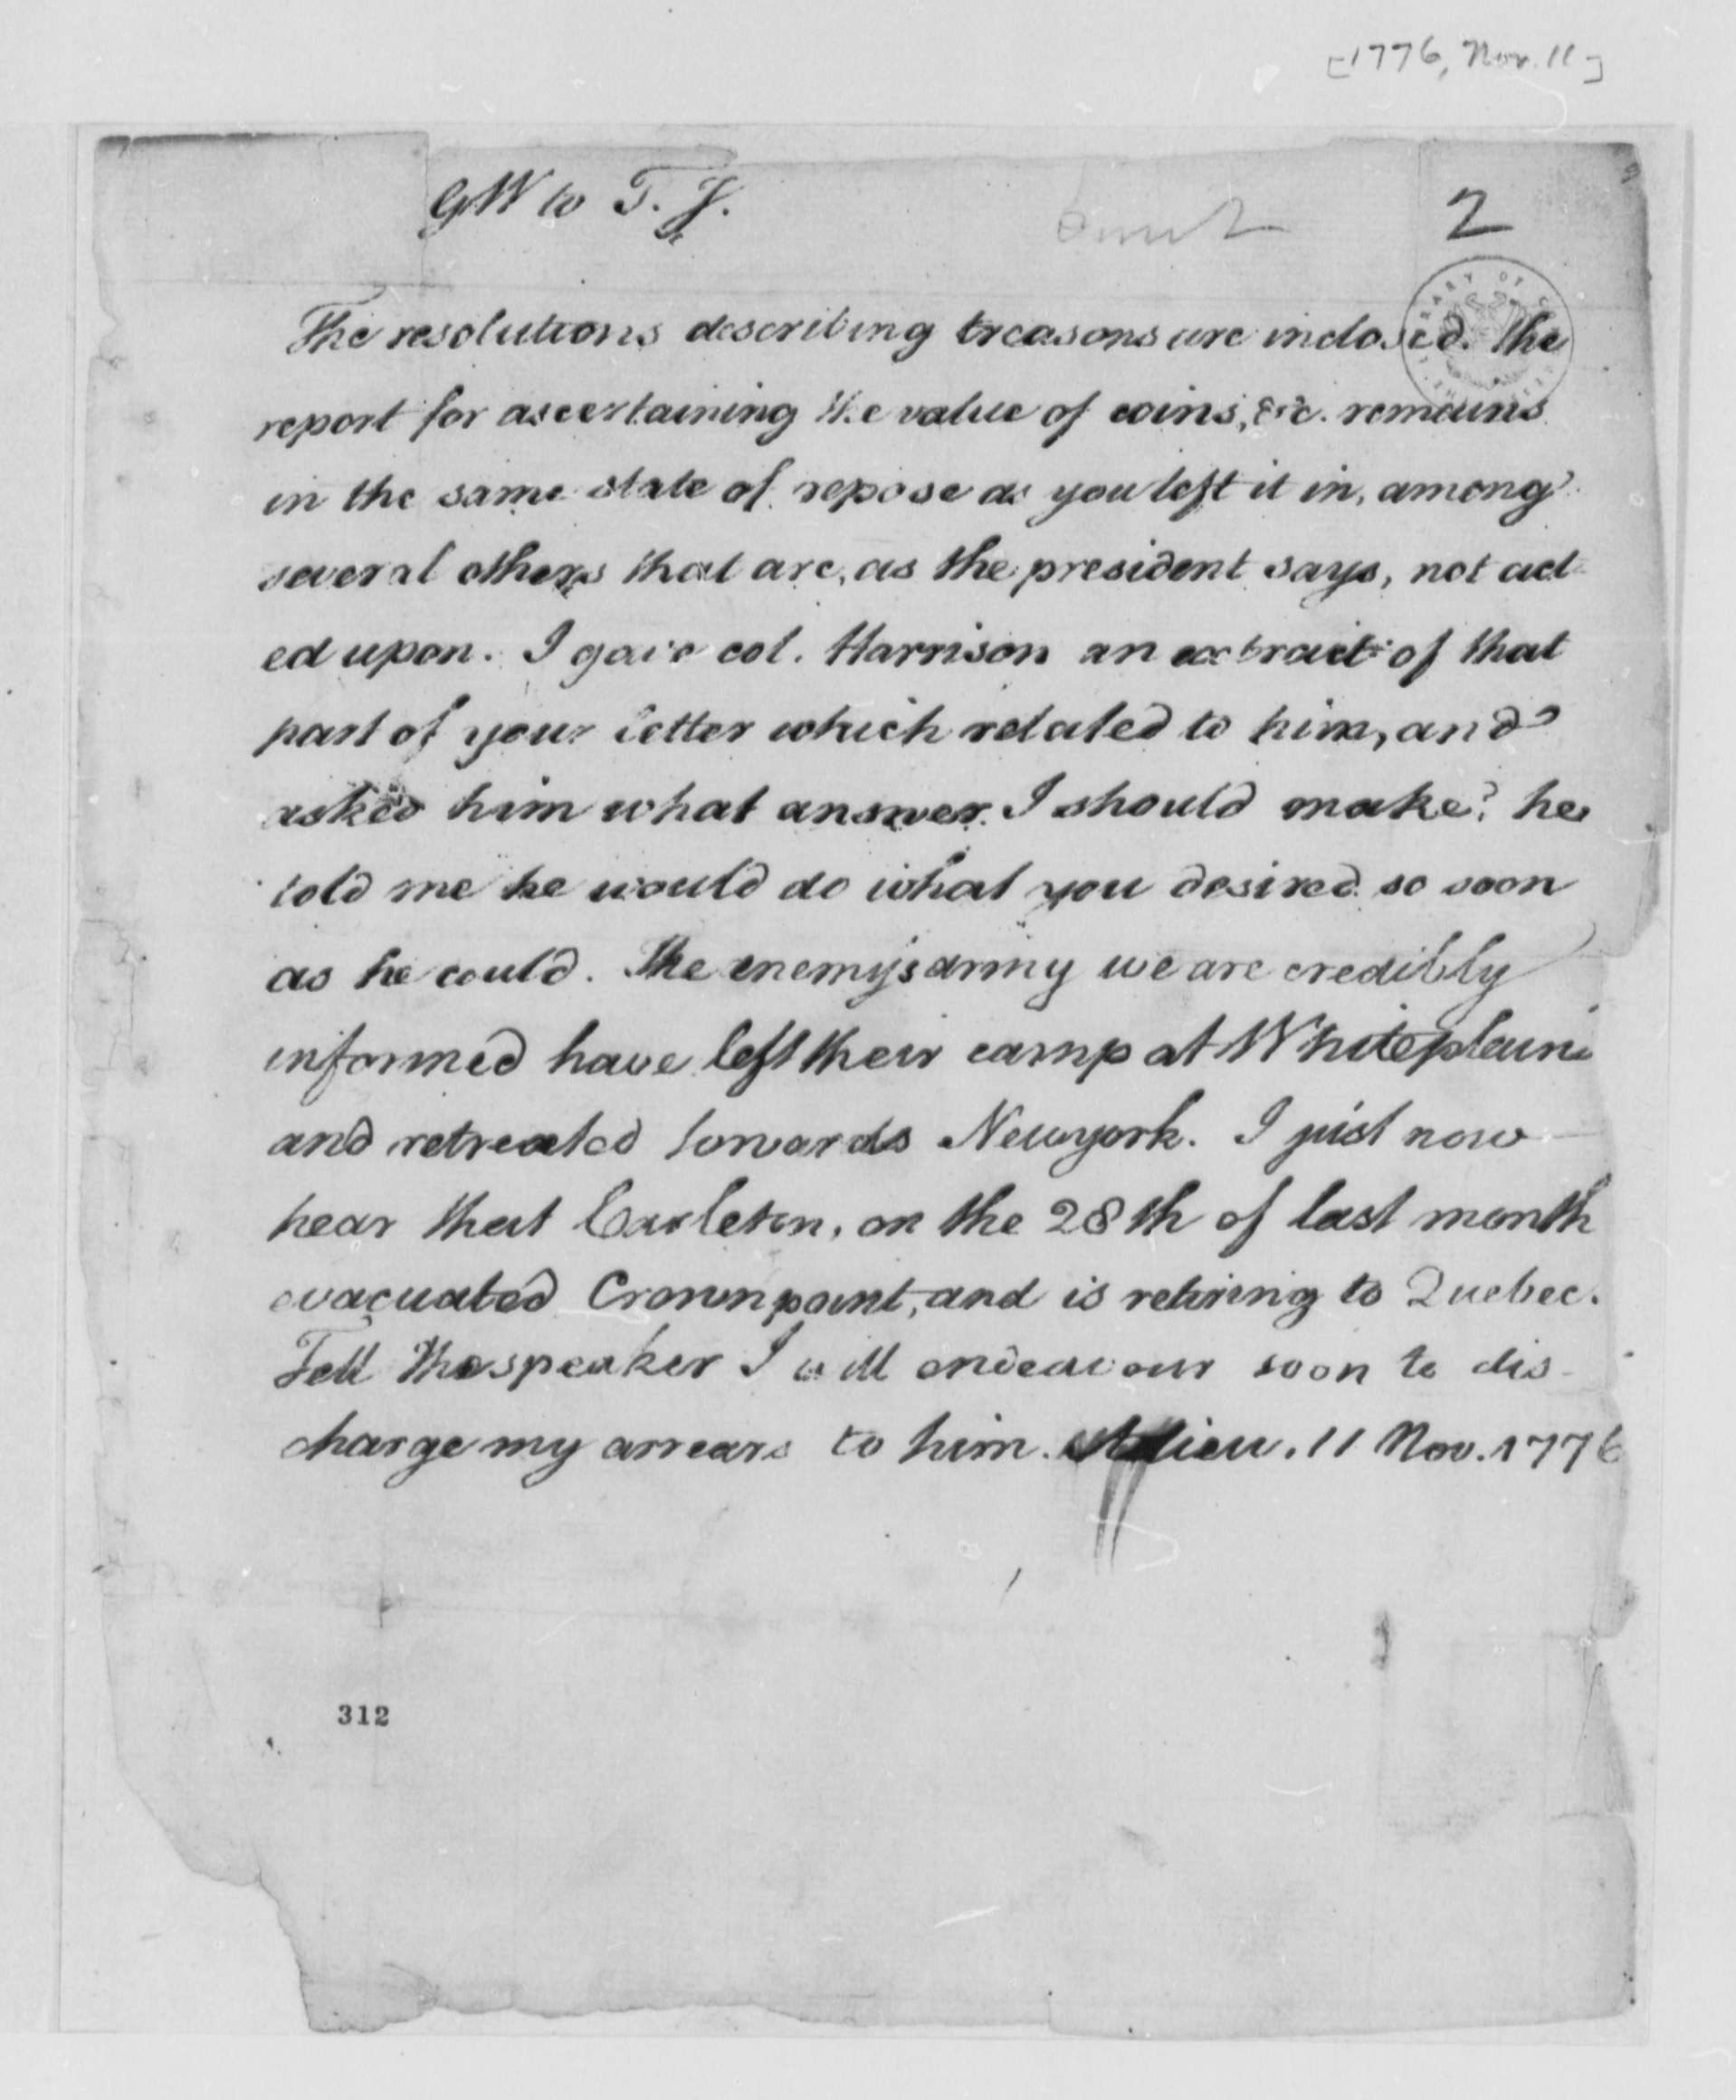 [1776, Nov. 11]
GW to T. J.
2
The resolutions describing treasons are inclosed. the
report for ascertaining the value of coins, &c. remains
in the same state of repose as you left it in, among
several others that are, as the president says, not act
ed upon. I gave col. Harrison an extract of that
part of your letter which related to him, and
asked him what answer I should make? he
told me he would do what you desired so soon
as he could. The enemy's army we are credibly
informed have left their camp at Whiteplains
and retreated towards Newyork. I just now
hear that Carleton, on the 28th of last month
evacuated Crownpoint, and is retiring to Quebec.
Tell the speaker I will endeavour soon to dis
charge my arrears to him. Adieu. 11 Nov. 1776
312